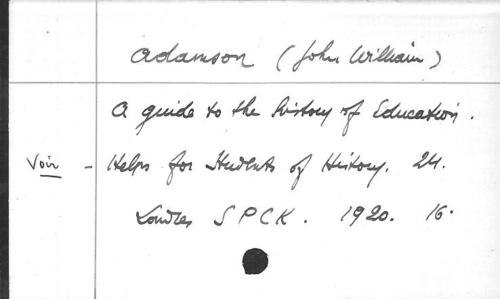 Adamson (John William)
A guide to the history of Education.
Voir - Helps for Students of History. 24.
Londres SPCK. 1920. 16.